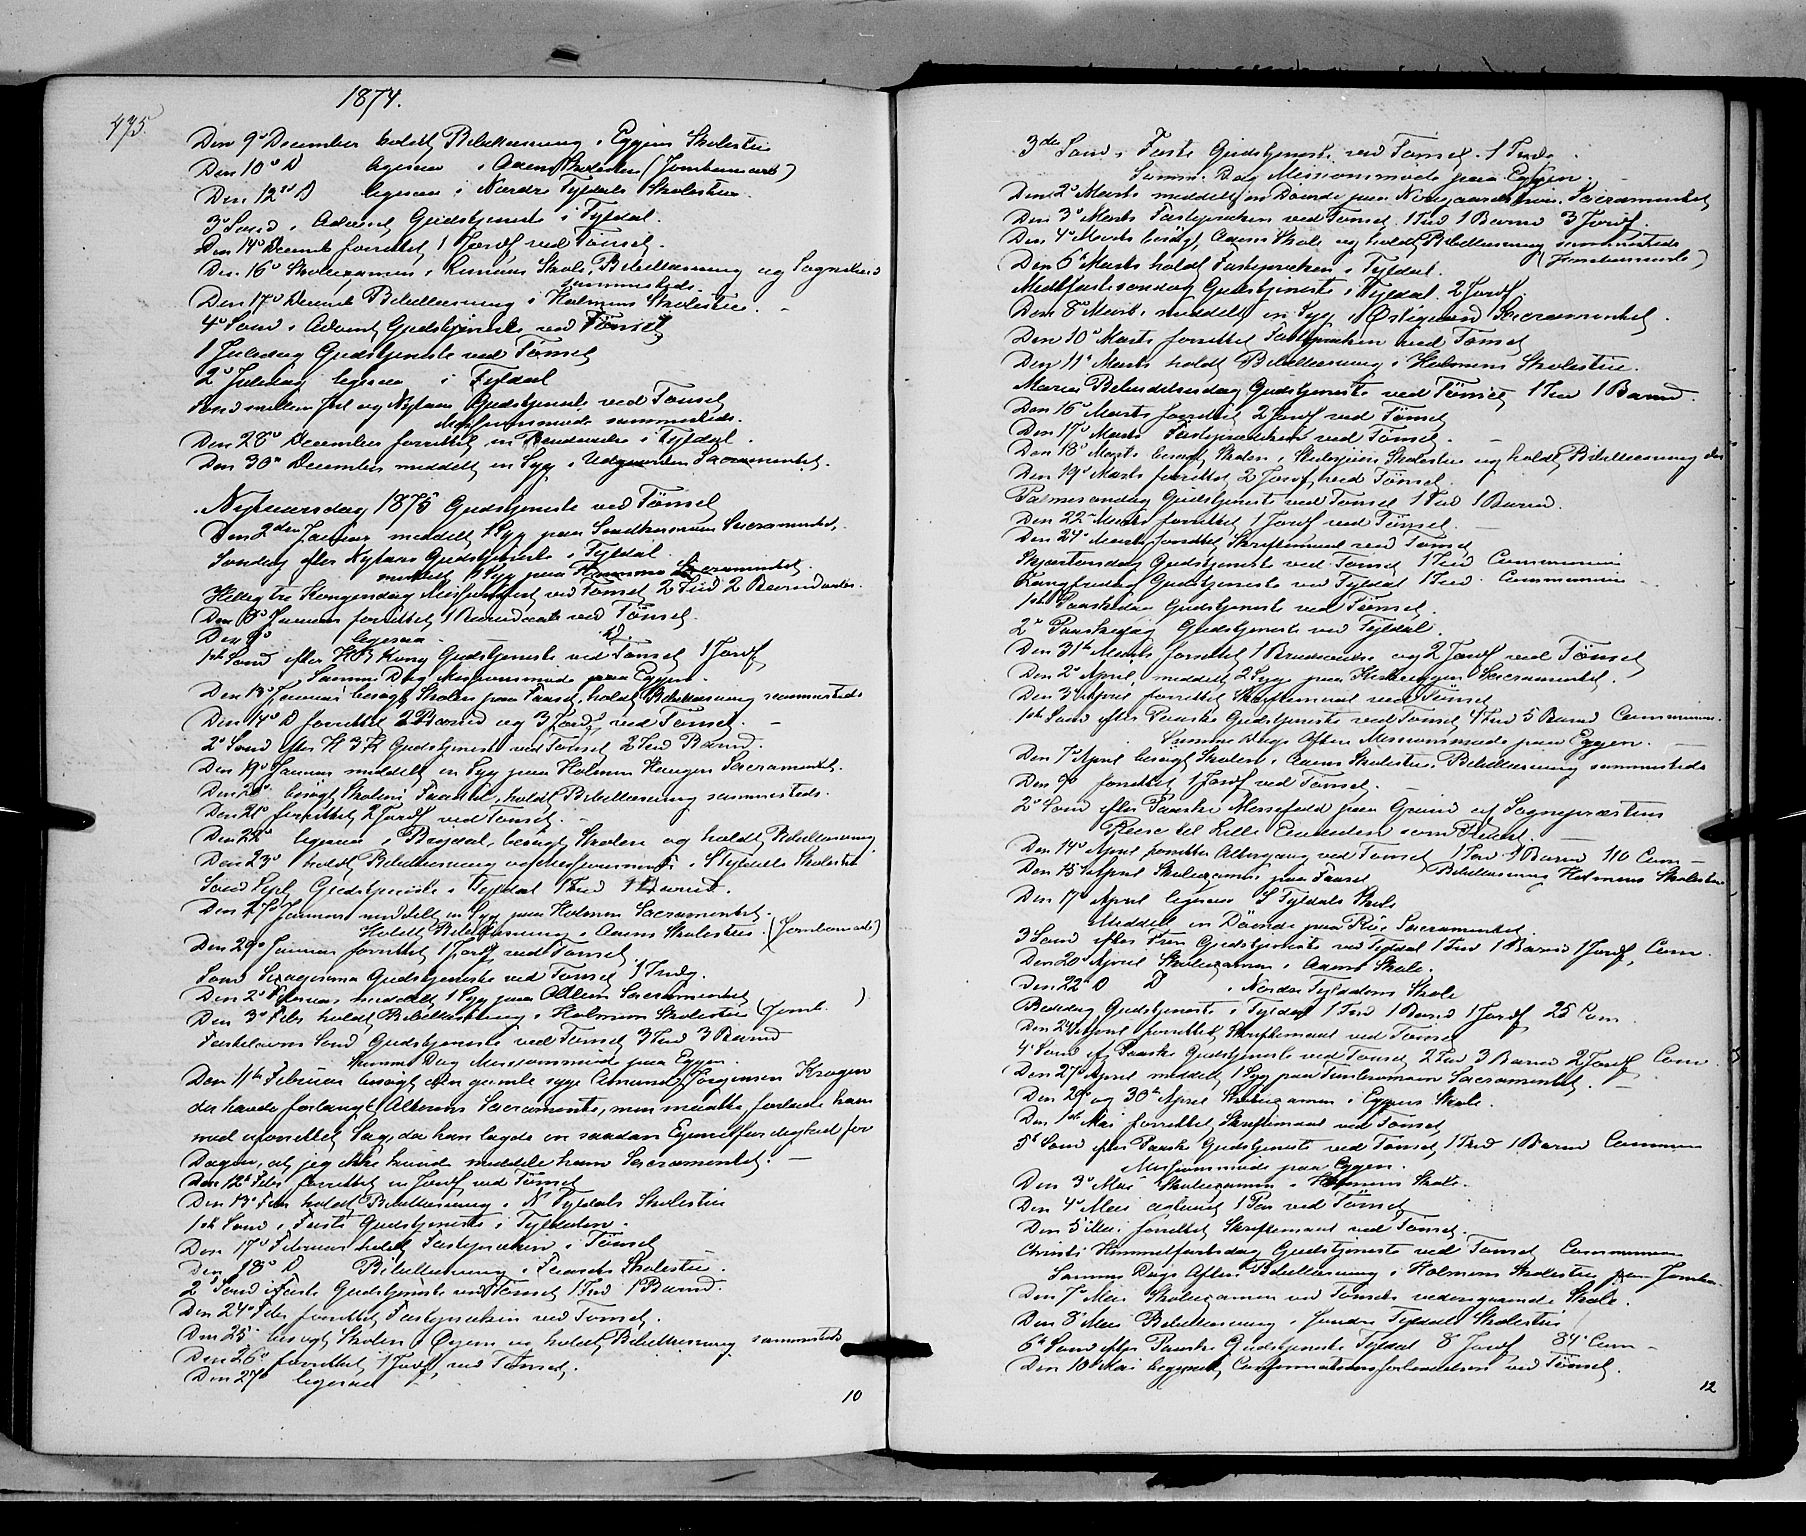 1874.
475.
Den 9de December holdt Bibellæsning i Eggens Skolestue
Den 10de D ligesaa i Aaens Skolestue (Jernbanearb)
Den 12te D ligesaa i Nordre Tyldals Skolestue
3de Sønd i Advent Gudstjeneste i Tyldal.
Den 14de Decemb forrettet 1 Jordf ved Tønset.
Den 16de Skoleexamen i Skole, Bibellæsning og Sognebud
sammesteds
Den 17de Decemb Bibellæsning i Holmens Skolestue. –
4de Sønd i Advent Gudstjeneste ved Tønset
1 Juledag Gudstjeneste ved Tønset
2de Juledag ligesaa i Tyldal
Sønd mellem Jul og Nytaar Gudstjeneste ved Tønset
Missionsmøde sammesteds.
Den 28de December forrettet en Brudevielse i Tyldal.
Den 30te December meddelt en Syg i Udgaarden Sacramentet.
Nytaarsdag 1875 Gudstjeneste ved Tønset
Den 2den Januar meddelt 1 Syg paa Sacramentet.
Søndag efter Nytaar Gudstjeneste i Tyldal.
meddelt 1 Syg paa Sacramentet.
Hellig tre Kongersdag Messefald ved Tønset 2 Ind 2 Barnedaab.
Den 8de Januar forrettet 1 Barnedaab ved Tønset.
Den 9de ligesaa D
1ste Sønd efter H 3 Kong Gudstjeneste ved Tønset 1 Jordf
Samme Dag Missionsmøde paa Eggen.
Den 13de Januar besøgt Skolen paa Faaset, holdt Bibellæsning sammesteds
Den 14de D forrettet 2 Barnd og 3 Jordf ved Tønset. –
2de Sønd efter H 3 K Gudstjeneste ved Tønset 2 Ind Barnd.
Den 19de Januar meddelt en Syg paa Holmen Haugen Sacramentet.
Den 20de besøgt Skolen i Faaset, holdt Bibellæsning sammesteds.
Den 21de forrettet 2 Jordf ved Tønset. –
Den 22de ligesaa i Brydal, besøgt Skolen og holdt Bibellæsning
Den 23de holdt Bibellæsning og Missionsmøde i S Tyldals Skolestue
Sønd Sept Gudstjeneste i Tyldal 1 Ind 1 Barnd.
Den 27de Januar meddelt en Syg paa Holmen Sacramentet.
Holdt Bibellæsning i Aaens Skolestue. (Jernbanearb)
Den 29de Januar forrettet 1 Jordf ved Tønset
Sønd Sexagesima Gudstjeneste ved Tønset 1 Indg.
Den 2de Februar meddelt 1 Syg paa Sacramentet
Den 3de Febr holdt Bibellæsning i Holmens Skolestue (Jernb. )
Fastelavns Sønd Gudstjeneste ved Tønset 3 Ind 3 Barnd
Samme Dag Missionsmøde paa Eggen.
Den 11te Februar besøgt den gamle syge Amund Jørgensen Krogen
der havde forlangt Alterens Sacramente, men maatte forlade ham
med uforrettet Sag, da han lagde en saadan Egenretfærdighed for
Dagen, at jeg ikke kunde meddele ham Sacramentet. –
Den 12te Febr forrettet en Jordf ved Tønset
Den 13de Febr holdt Bibellæsning i N Tyldals Skolestue
1ste Sønd i Faste Gudstjeneste i Tyldalen.
Den 17de Februar holdt Fasteprædiken i Tønset
Den 18de D Bibellæsning i Faasets Skolestue.
2de Sønd i Faste Gudstjeneste ved Tønset 1 Ind 1 Barnd.
Den 24de Febr forrettet Fasteprædiken ved Tønset.
Den 25 besøgt Skolen i og holdt Bibellæsning sammesteds
Den 26de forrettet 1 Jordf ved Tønset.
Den 27de ligesaa –
10
3die Sønd i Faste Gudstjeneste ved Tønset. 1 Indg.
Samme Dag Missionsmøde paa Eggen. –
Den 2de Marts meddelt en Døende paa Sacramentet
Den 3de Marts Fasteprædiken ved Tønset. 1 Ind 1 Barnd 3 Jordf
Den 4de Marts besøgt Aaens Skole og holdt Bibellæsning sammesteds
(Jernbanearb)
Den 6te Marts holdt Fasteprædiken i Tyldal.
Midfastesøndag Gudstjeneste i Tyldal. 2 Jordf.
Den 8de Marts meddelt en Syg i Østigaard Sacramentet.
Den 10de Marts forrettet Fasteprædiken ved Tønset
Den 11te Marts holdt Bibellæsning i Holmens Skolestue.
Mariæ Bebudelsesdag Gudstjeneste ved Tønset 1 Ind 1 Barnd.
Den 16de Marts forrettet 2 Jordf ved Tønset
Den 17de Marts Fasteprædiken ved Tønset. –
Den 18de Marts besøgt Skolen i Skolestue og holdt Bibellæsning der
Den 19de Marts forrettet 2 Jordf ved Tønset.
Palmesøndag Gudstjeneste ved Tønset 1 Ind 1 Barnd.
Den 22de Marts forrettet 1 Jordf ved Tønset. –
Den 24de Marts forrettet Skriftemaal ved Tønset
Skjærtorsdag Gudstjeneste ved Tønset 1 Ind Communion
Langfredag Gudstjeneste ved Tyldal 1 Ind. Communion –
1ste Paaskedag Gudstjeneste ved Tønset.
2de Paaskedag Gudstjeneste ved Tyldal.
Den 31te Marts forrettet 1 Brudevielse og 2 Jordf ved Tønset
Den 2de April meddelt 2 Syge paa Sacramentet.
Den 3die April forrettet Skriftemaal ved Tønset
1ste Sønd efter Paaske Gudstjeneste ved Tønset 4 Ind 5 Barnd Communion.
Samme Dags Aften Missionsmøde paa Eggen.
Den 7de April besøgt Skolen i Aaens Skolestue. Bibellæsning sammesteds
Den 9de forrettet 1 Jordf ved Tønset. –
2de Sønd efter Paaske Messefald paa Grund af Sognepræstens
Reise til Lille Elvedalen som
Den 14de April forrettet Altergang ved Tønset 1 Ind 1 Barnd 110 Com –
Den 15de April Skoleexamen paa Faaset Bibellæsning Holmens Skolestue
Den 17de April ligesaa S Tyldals Skole
Meddelt en Døende paa Sacramentet.
3 Sønd efter Gudstjeneste ved Tyldal 1 Ind 1 Barnd 1 Jordf, Com.
Den 20de April Skoleexamen i Aaens Skole.
Den 22de D D i Nordre Tyldalens Skole
Bededag Gudstjeneste i Tyldal 1 Ind 1 Barnd 1 Jordf 25 Com.
Den 24de April forrettet Skriftemaal ved Tønset
4de Sønd ef Paaske Gudstjeneste ved Tønset 2 Ind 3 Barnd 2 Jordf Com
Den 27 April meddelt 1 Syg paa Sacramentet. –
Den 29de og 30te April Skoleexamen i Eggens Skole.
Den 1ste Mai forrettet Skriftemaal ved Tønset
5te Sønd efter Paaske Gudstjeneste ved Tønset 1 Ind 1 Barnd Communion
Missionsmøde paa Eggen.
Den 3de Mai Skoleexamen i Holmens Skole.
Den 4de Mai ægteviet 1 Par ved Tønset
Den 5te Mai forrettet Skriftemaal ved Tønset.
Christi Himmelfartsdag Gudstjeneste ved Tønset Communion
Samme Dags Aften Bibellæsning i Holmens Skolestue for Jernba.
Den 7de Mai Skoleexamen ved Tønsets vedergaaende Skole.
Den 8de Mai Bibellæsning i Søndre Tyldals Skolestue
6te Sønd efter Paaske Gudstjeneste Tyldal 8 Jordf 84 Com –
Den 10 Mai begyndt Confirmationsforberedelsen ved Tønset.
12